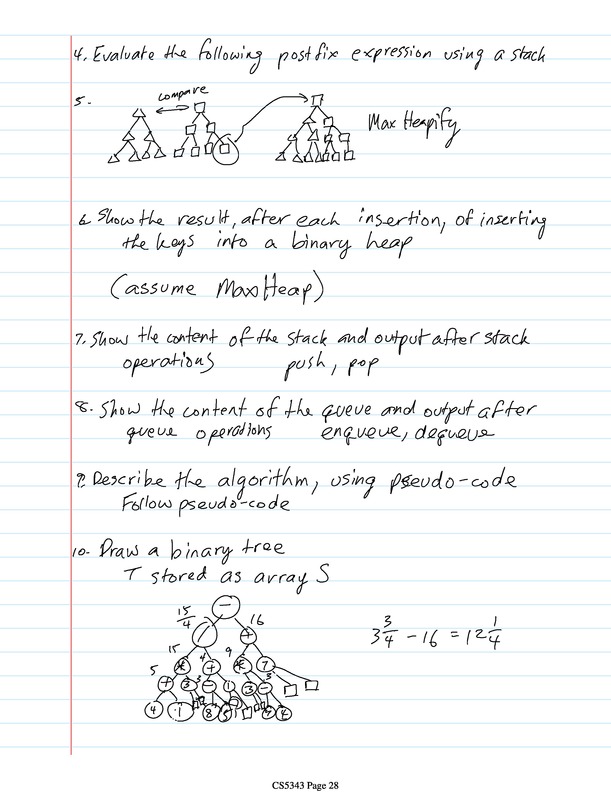 4. Evaluate the following postfix expression using a stack
5.
compare
Max Heapify
6. Show the result, after each insertion, of inserting
the keys into a binary heap
(assume MaxHeap)
7. Show the content of the stack and output after stack
operations push, pop
8. Show the content of the queue and output after
queue operations enqueue, dequeue
9. Describe the algorithm, using pseudo-code
Follow pseudo-code
10. Draw a binary tree
T stored as array S
15/4 - 16
/ +
15 4 9
5 * + * 7
+ 3 3 - 1 3 - 3
4 1 8 5 9 4
3 3/4 - 16 = 12 1/4
CS5343 Page 28